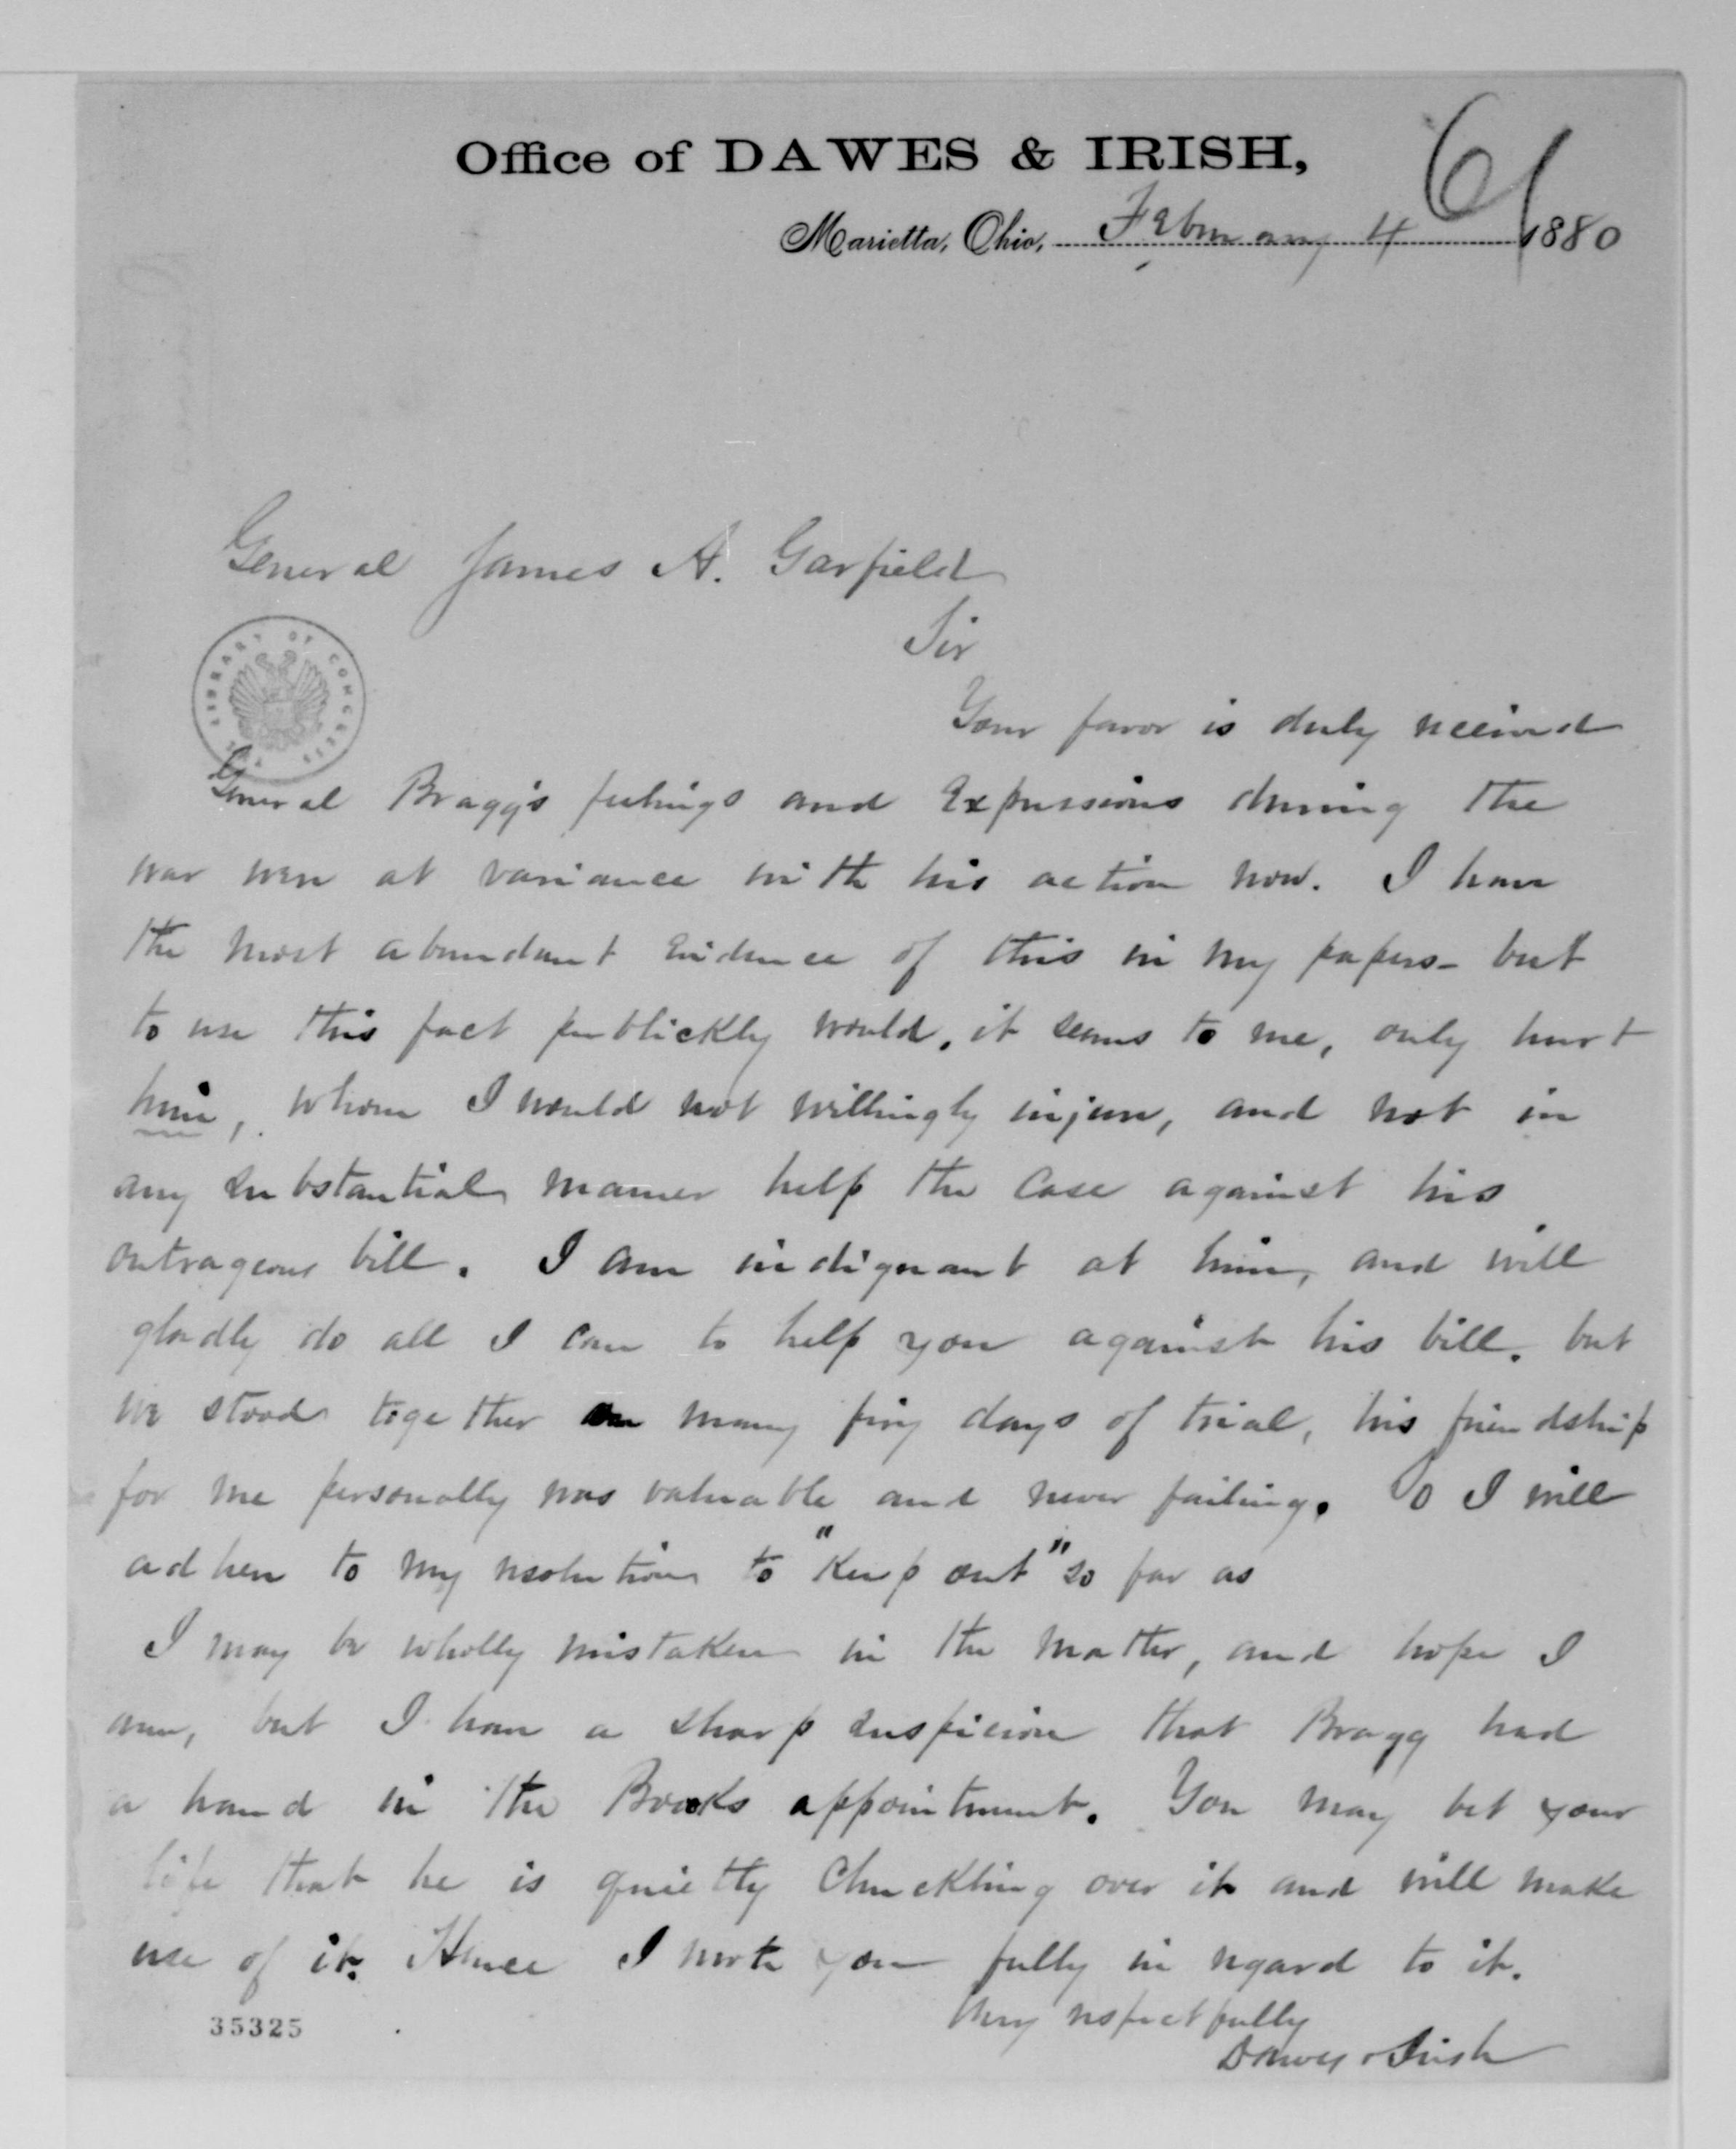 Office of DAWES & IRISH,
61
Marietta, Ohio, February 4 1880
General James A. Garfield
Sir
LIBRARY OF CONGRESS
Your favor is duly received
General Bragg's feelings and Expressions during the
war were at variance with his action now. I have
the most abundant Evidence of this in my papers - but
to use this fact publickly would, it seems to me, only hurt
him, whom I would not willingly injure, and not in
any substantial manner help the case against his
outrageous bill. I am indignant at him, and will
gladly do all I can to help you against his bill. but
we stood together on many firy days of trial, his friendship
for me personally was valuable and never failing. So I will
adhere to my resolution to "Keep out" so far as
I may be wholly mistaken in the matter, and hope I
am, but I have a sharp suspicion that Bragg had
a hand in the Brooks appointment. You may bet your
life that he is quietly Chuckling over it and will make
use of it. Hence I wrote you fully in regard to it.
35325
Very respectfully
Dawes & Irish